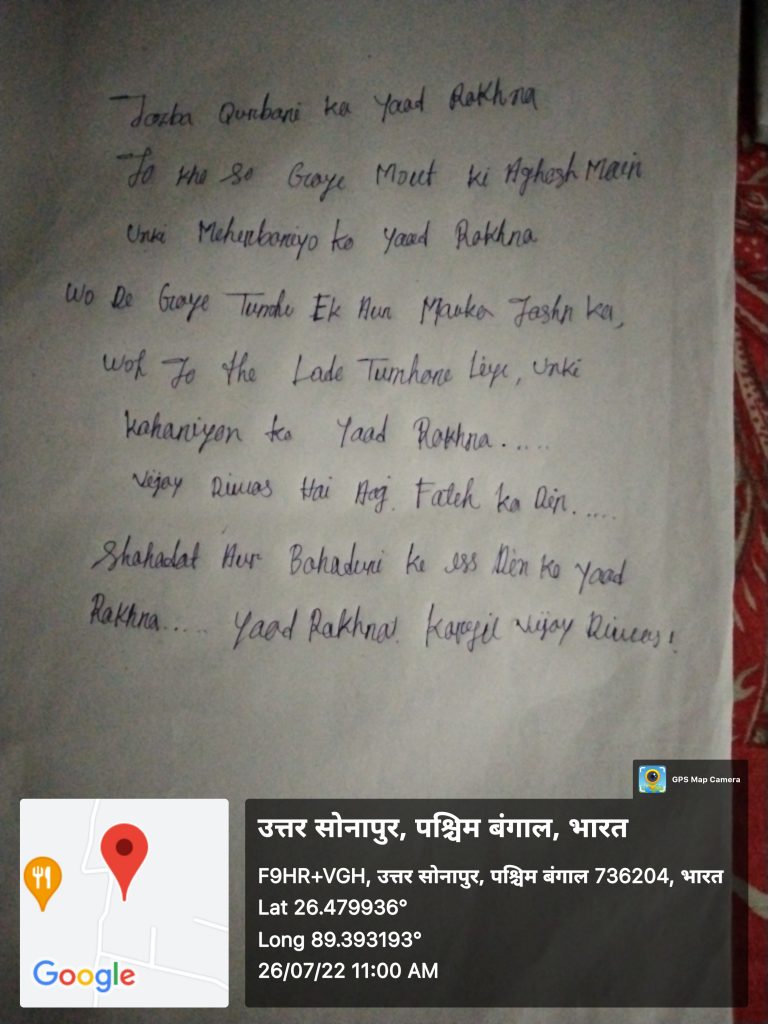 Jazba Qurbani ka Yaad Rakhna
Jo kho so Gaye Mout ki Aghosh Main
Unki Meherbaniyo ko Yaad Rakhna
Wo De Gaye Tumhe Ek Aur Mauka Jashn ka,
Woh Jo the Lade Tumhare Liye, Unki
Kahaniyon ko Yaad Rakhna.....
Vijay Diwas Hai Aaj. Fateh ka Din.....
Shahadat Aur Bahaduri ke ess Din ko Yaad
Rakhna..... Yaad Rakhna! Kargil Vijay Diwas!
GPS Map Camera
उत्तर सोनापुर, पश्चिम बंगाल, भारत
F9HR+VGH, उत्तर सोनापुर, पश्चिम बंगाल 736204, भारत
Lat 26.479936°
Long 89.393193°
26/07/22 11:00 AM
Google